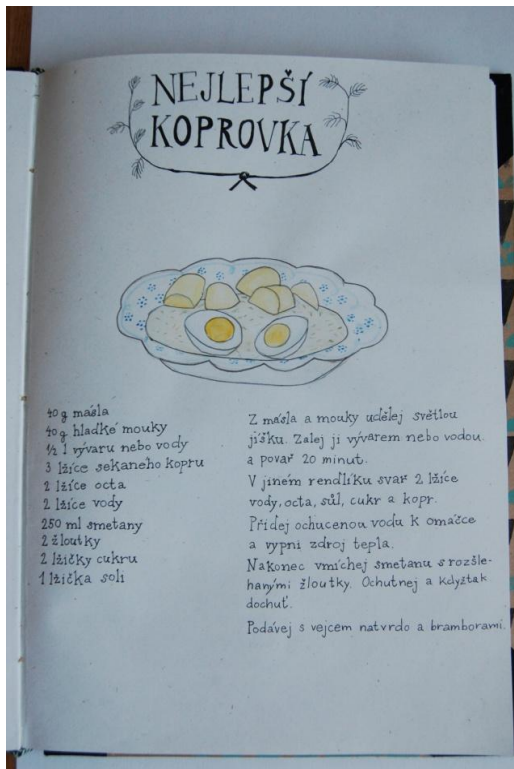 NEJLEPŠÍ
KOPROVKA
40 g másla
40 g hladké mouky
½ l vývaru nebo vody
3 lžíce sekaného kopru
2 lžíce octa
2 lžíce vody
250 ml smetany
2 žloutky
2 lžičky cukru
1 lžička soli
Z másla a mouky udělej světlou
jíšku. Zalej ji vývarem nebo vodou.
a povař 20 minut.
V jiném rendlíku svař 2 lžíce
vody, octa, sůl, cukr a kopr.
Přidej ochucenou vodu k omáčce
a vypni zdroj tepla.
Nakonec vmíchej smetanu s rozšle-
hanými žloutky. Ochutnej a kdyžtak
dochuť.
Podávej s vejcem natvrdo a bramborami.